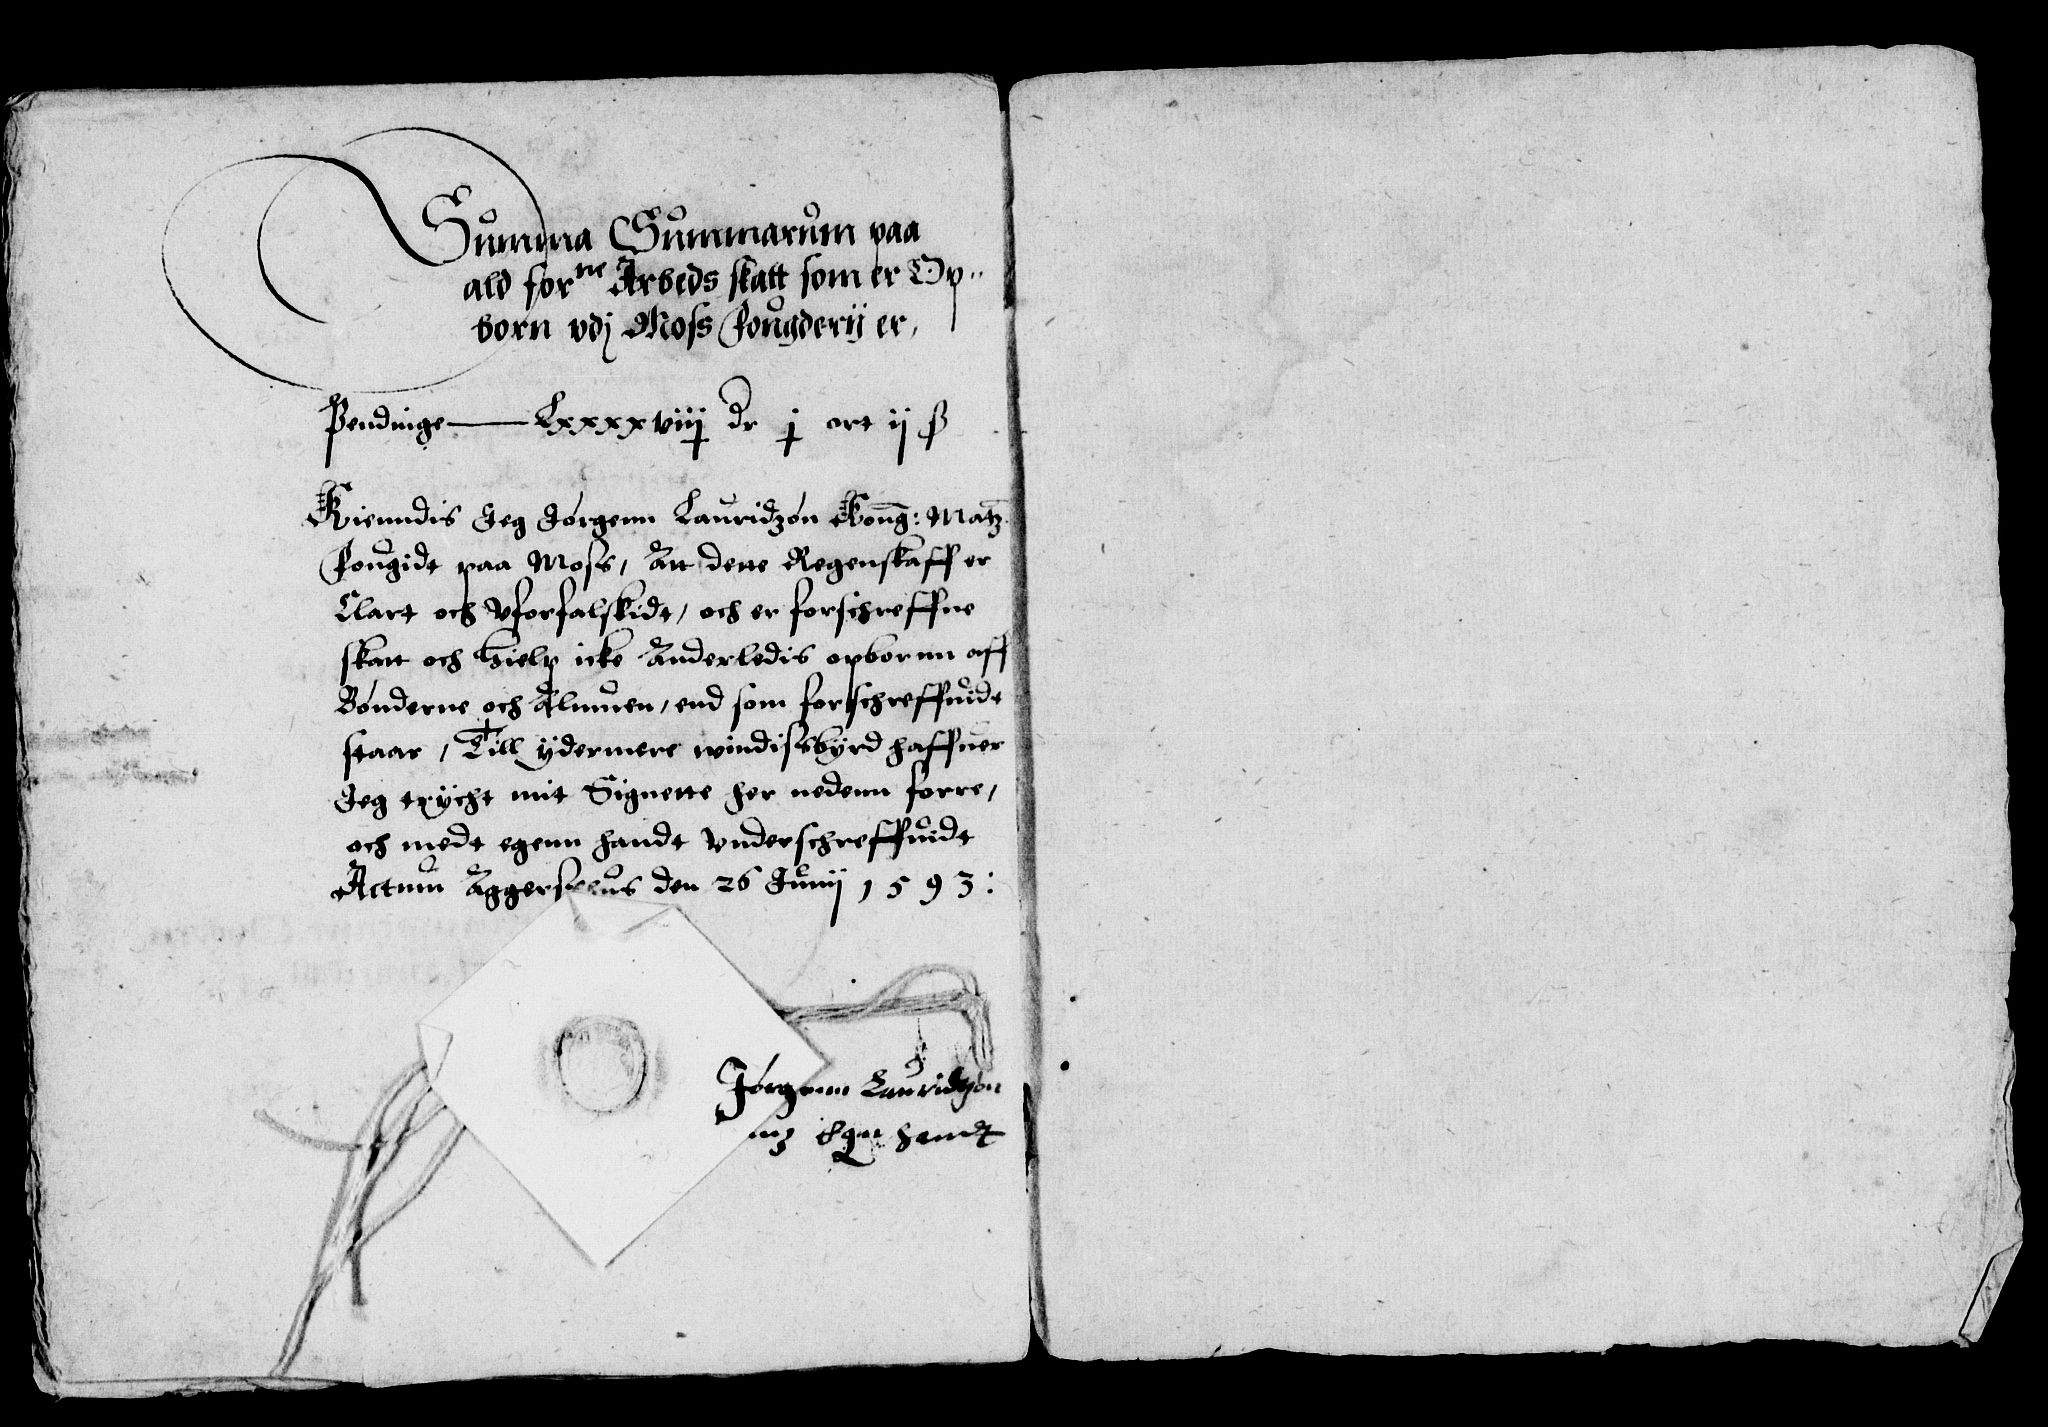 Summa Summarum paa
ald for^ne Arbeds skatt som er Op-
born vdj Moss Fougderij er,
Pendinge — Lxxxxviij dr j ort ij ß
Kienndis Jeg Jórgenn Lauridzón Kong: Matz
Fougidt paa Moss, Att dette Regenskaff er
Clart och Vforfalskidt, och er forschreffne
skatt och hielp icke Anderledis opbornn aff
Bónderne och Almuen, end som forschreffuidt
staar, Till ydermere windissbyrd haffuer
Jeg trycht mit Signette her nedenn forre,
och medt egenn handt Vnderschreffuidt
Actum Aggershuus den 26 Junij 1593:
Jórgenn Lauridzón
mz Egn handt